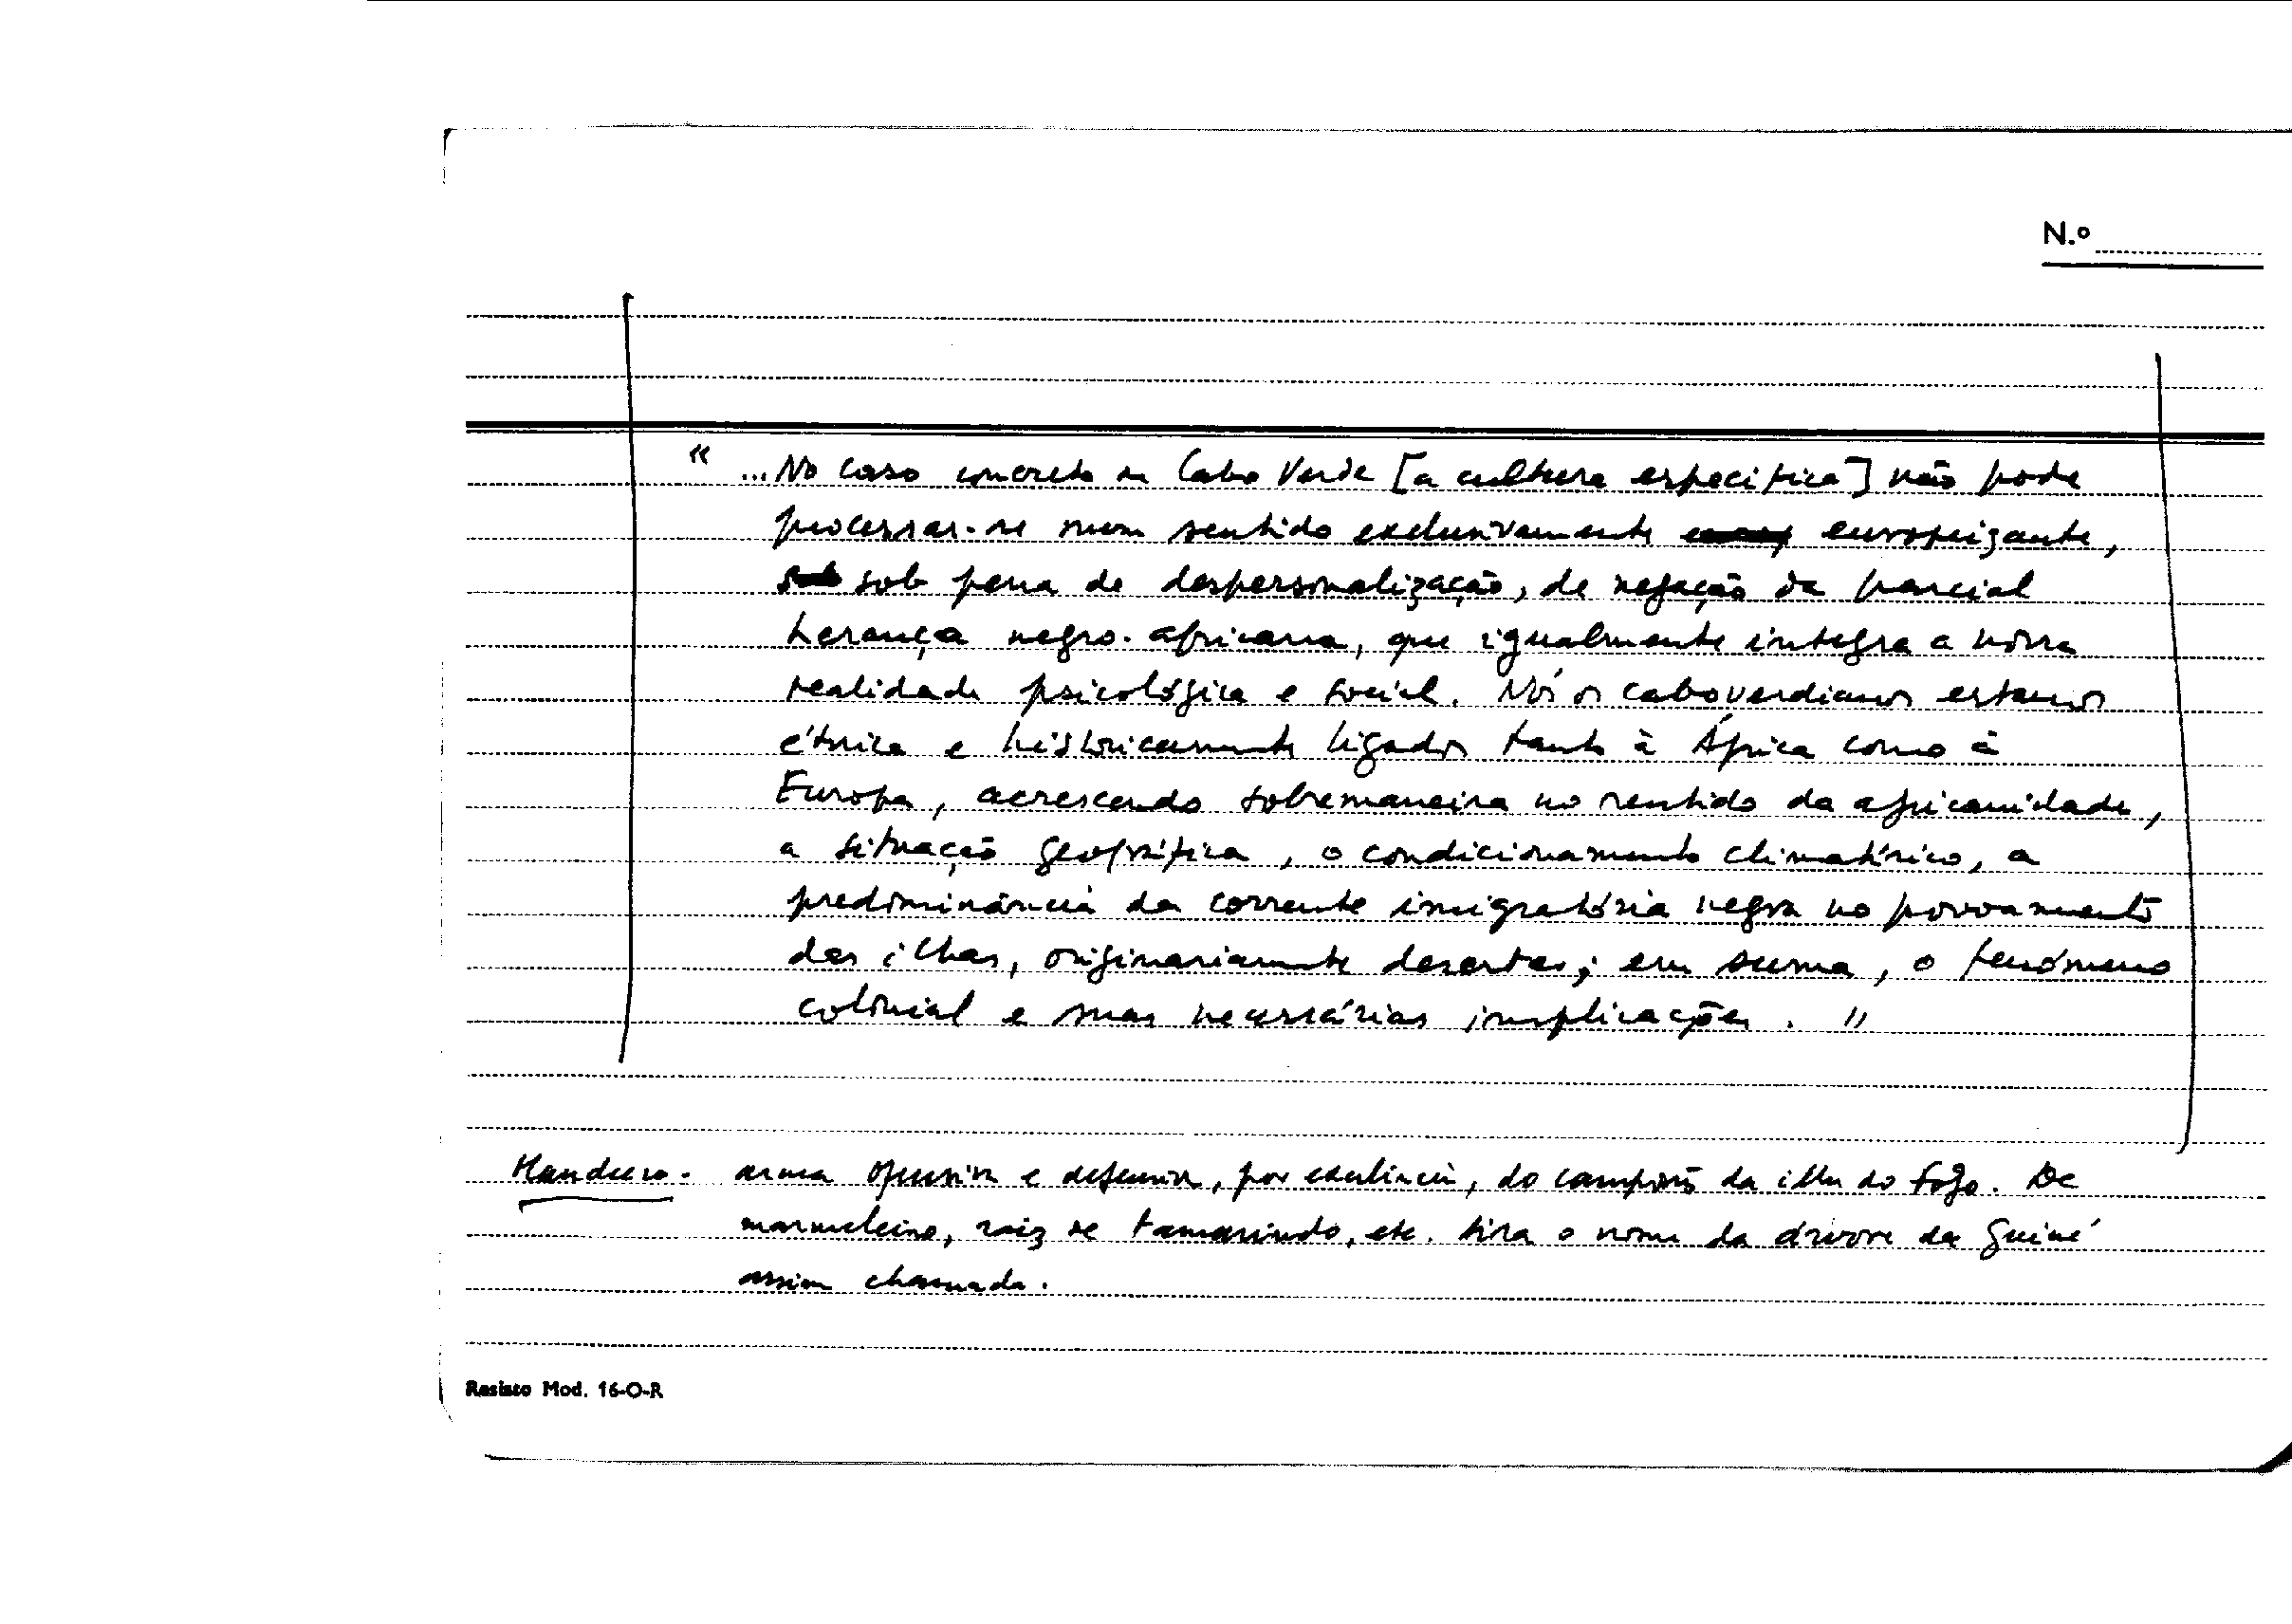 N.º
“ ...No caso concreto de Cabo Verde [a cultura específica] não pode
processar-se num sentido exclusivamente europeizante,
sob pena de despersonalização, de negação da parcial
herança negro-africana, que igualmente integra a nossa
realidade psicológica e social. Nós os caboverdianos estamos
étnica e històricamente ligados tanto à África como à
Europa, acrescendo sobremaneira no sentido da africanidade,
a situação geográfica, o condicionamento climatérico, a
predominância da corrente imigratória negra no povoamento
das ilhas, originariamente desertas; em suma, o fenómeno
colonial e suas necessárias implicações. ”
Manduco - arma ofensiva e defensiva, por excelência, do camponês da ilha do Fogo. De
marmeleiro, raiz de tamarindo, etc. tira o nome da árvore da Guiné
assim chamada.
Resisto Mod. 16-O-R